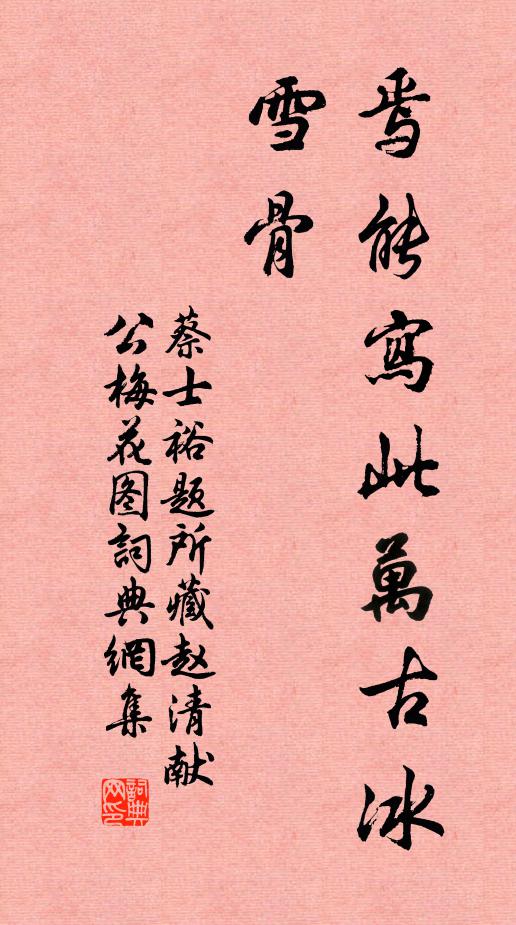 焉能寫此萬古冰
雪骨
蔡士裕题所藏赵清献
公梅花图詞典網集
詞典
网印